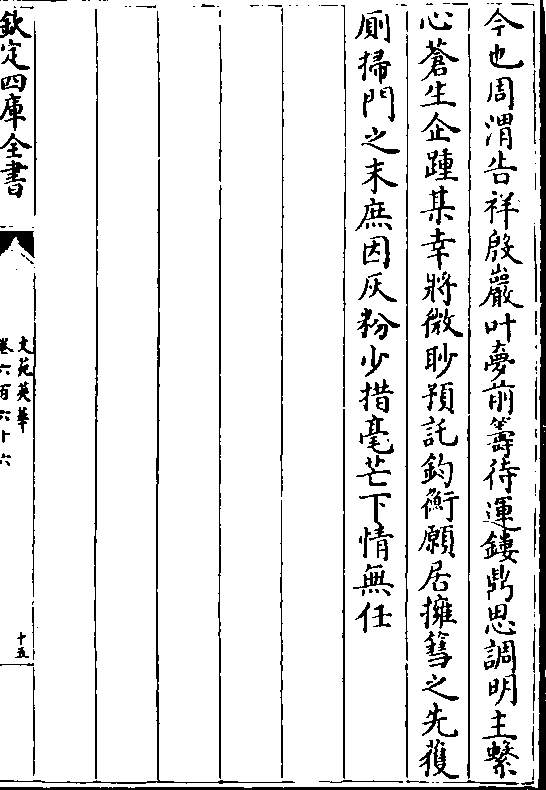 今也周渭告祥殷巖叶夢前籌待運鏤鼎思調明主繫
心蒼生企踵某幸將微眇預託鈞衡願居擁篲之先獲
厠掃門之末庶因灰粉少措毫芒下情無任
欽定四庫全書
文苑英華
卷六百六十六
十五